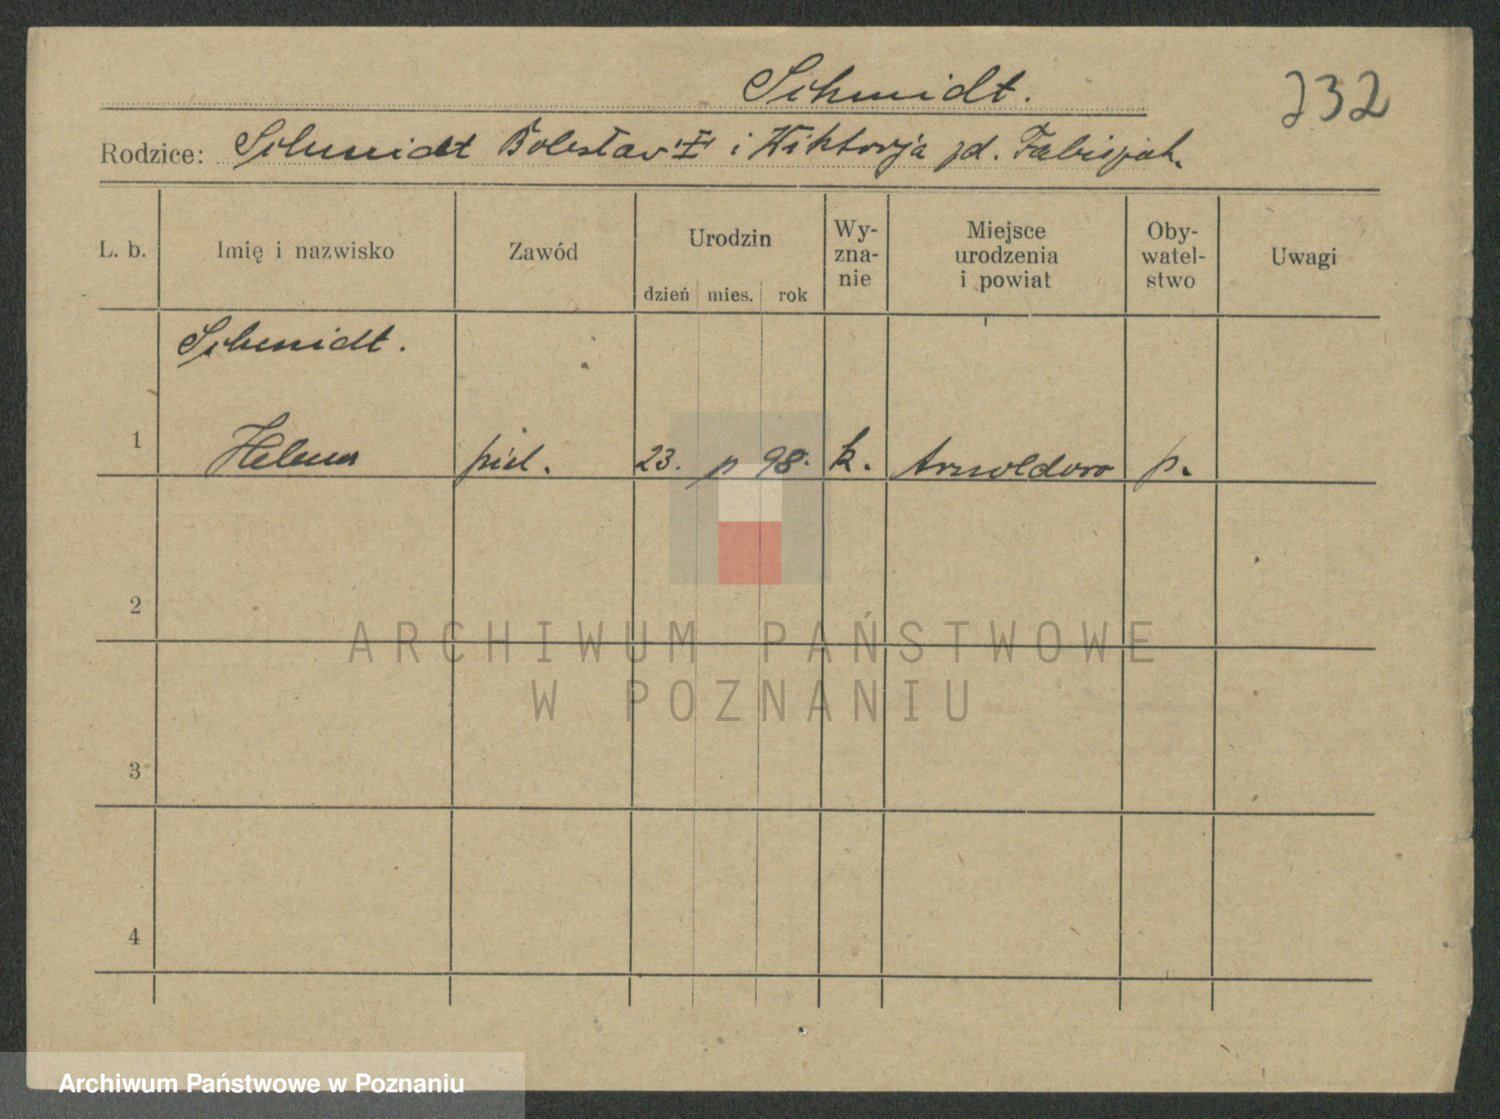 Schmidt.
232
Rodzice: Schmidt Bolesław "I" i Wiktorja zd. Fabisjak.
L. b. Imię i nazwisko Zawód Urodzin dzień mies. rok Wy-zna-nie Miejsce urodzenia i powiat Oby-watel-stwo Uwagi
Schmidt.
1 Helena piel. 23. 98. k. Arnoldowo p.
2
3
4
ARCHIWUM PAŃSTWOWE
W POZNANIU
Archiwum Państwowe w Poznaniu